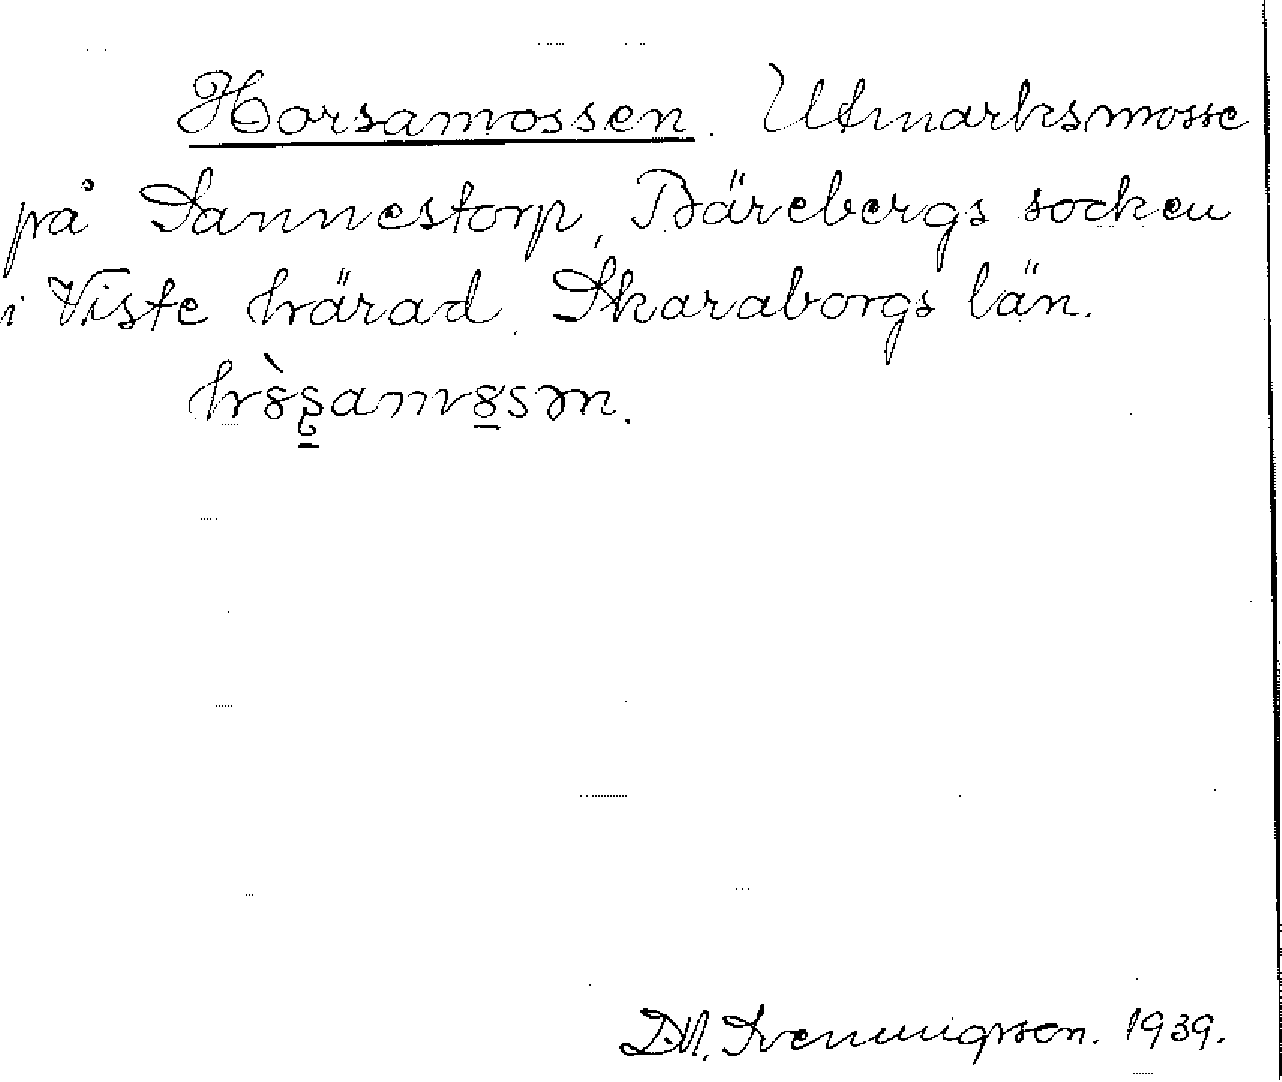 Horsamossen. Utmarksmosse
på Sannestorp, Bärebergs socken
i Viste härad. Skaraborgs län.
D.M. Svenningsson. 1939.